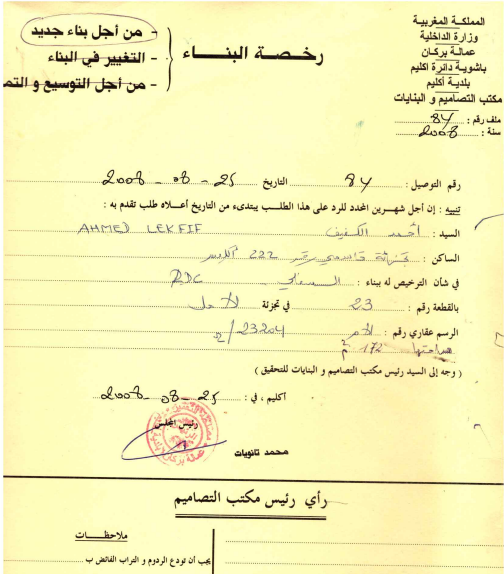 المملكة المغربية
وزارة الداخلية
عمالة بركان
باشوية دائرة اكليم
بلدية أكليم
مكتب التصاميم و البنايات
ملف رقم : 84
سنة : 2008
رخصة البناء
- من أجل بناء جديد
- التغيير في البناء
- من أجل التوسيع و التم
رقم التوصيل : 84 التاريخ 25 - 08 - 2008
تنبيه : إن أجل شهرين المحدد للرد على هذا الطلب يبتدىء من التاريخ أعلاه طلب تقدم به :
السيد : أحمد الكفيف AHMED LEKFIF
الساكن : تجزئة قاسمي رقم 222 اكليم
في شأن الترخيص له ببناء : السفلي RDC
بالقطعة رقم : 23 في تجزئة الأمل
الرسم عقاري رقم : 23204/
مساحتها 172 م
( وجه إلى السيد رئيس مكتب التصاميم و البنايات للتحقيق )
اكليم ، في : 25 - 08 - 2008
رئيس المجلس
محمد تانويات
رأي رئيس مكتب التصاميم
ملاحظات
يجب أن تودع الردوم و التراب الفائض ب